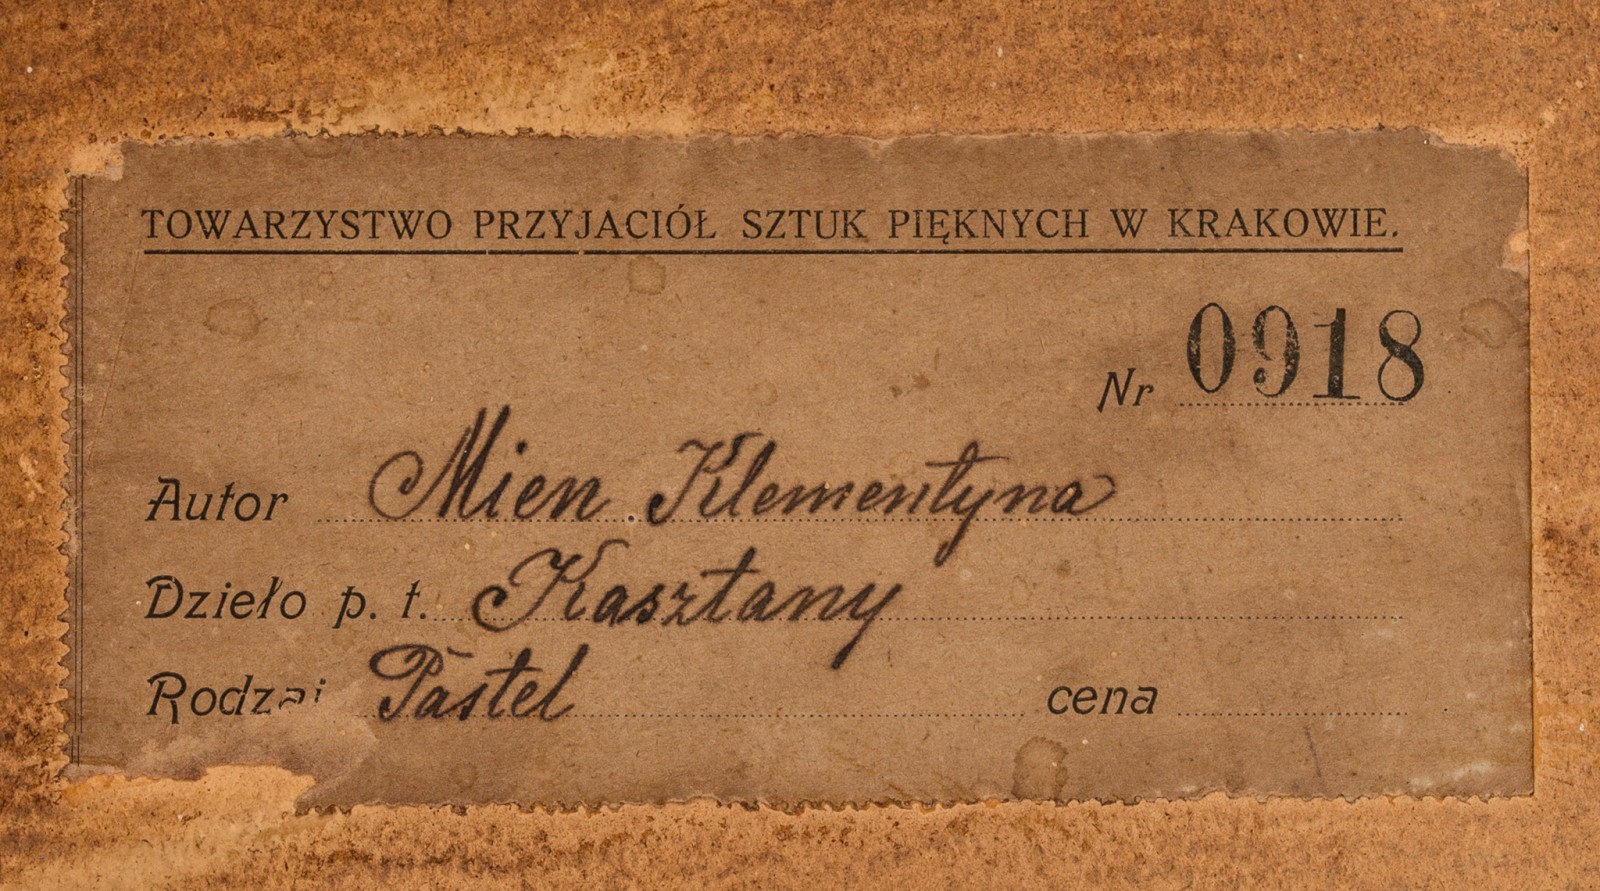 TOWARZYSTWO PRZYJACIÓŁ SZTUK PIĘKNYCH W KRAKOWIE.
Nr 0918
Autor Mien Klementyna
Dzieło p. t. Kasztany
Rodzaj Pastel cena